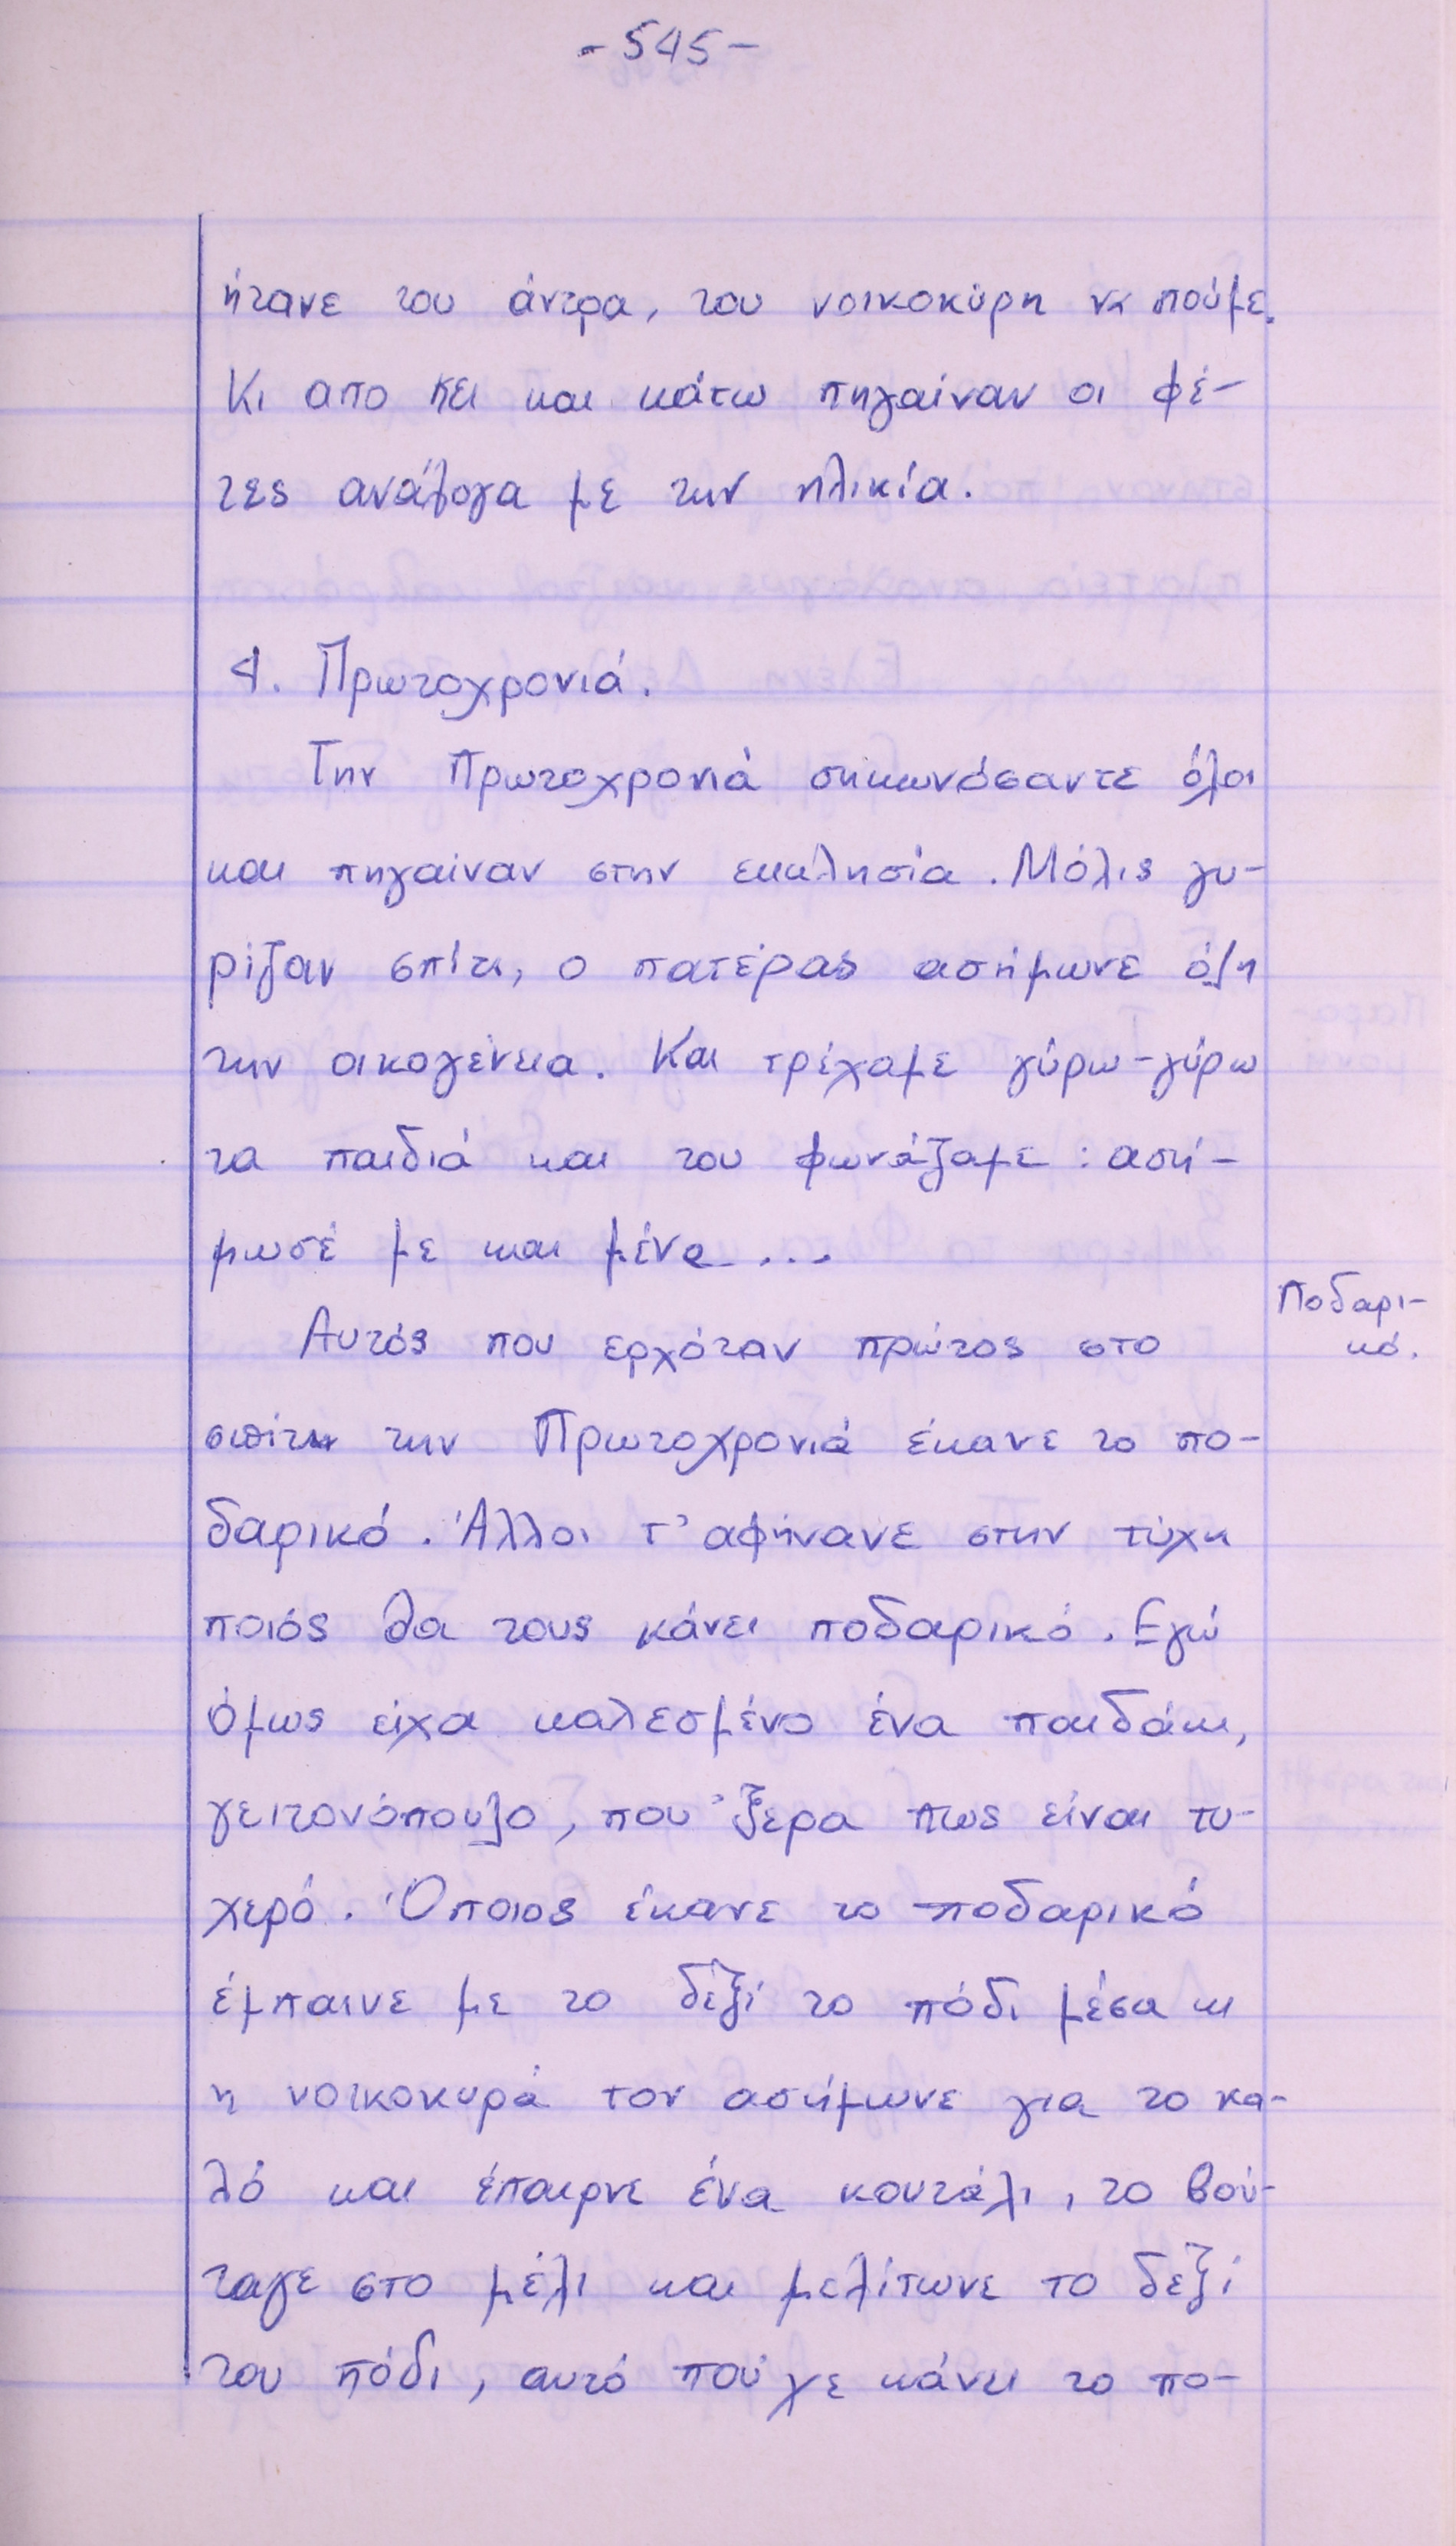 - 545 -
ήτανε του άντρα, του νοικοκύρη να πούμε.
Κι απο κει και κάτω πηγαίναν οι φέ-
τες ανάλογα με την ηλικία.
4. Πρωτοχρονιά.
Την Πρωτοχρονιά σηκωνόσαντε όλοι
και πηγαίναν στην εκκλησία. Μόλις γυ-
ρίζαν σπίτι, ο πατέρας ασήμωνε όλη
την οικογένεια. Και τρέχαμε γύρω-γύρω
τα παιδιά και του φωνάζαμε: αση-
μωσέ με και μένα ...
Ποδαρι-
κό.
Αυτός που ερχόταν πρώτος στο
σπίτι την Πρωτοχρονιά έκανε το πο-
δαρικό. Άλλοι τ' αφήνανε στην τύχη
ποιός θα τους κάνει ποδαρικό. Εγώ
όμως είχα καλεσμένο ένα παιδάκι,
γειτονόπουλο, που 'ξερα πως είναι τυ-
χερό. Όποιος έκανε το ποδαρικό
έμπαινε με το δεξί το πόδι μέσα κι
η νοικοκυρά τον ασήμωνε για το κα-
λό και έπαιρνε ένα κουτάλι, το βού-
ταγε στο μέλι και μελίτωνε το δεξί
του πόδι, αυτό που 'χε κάνει το πο-